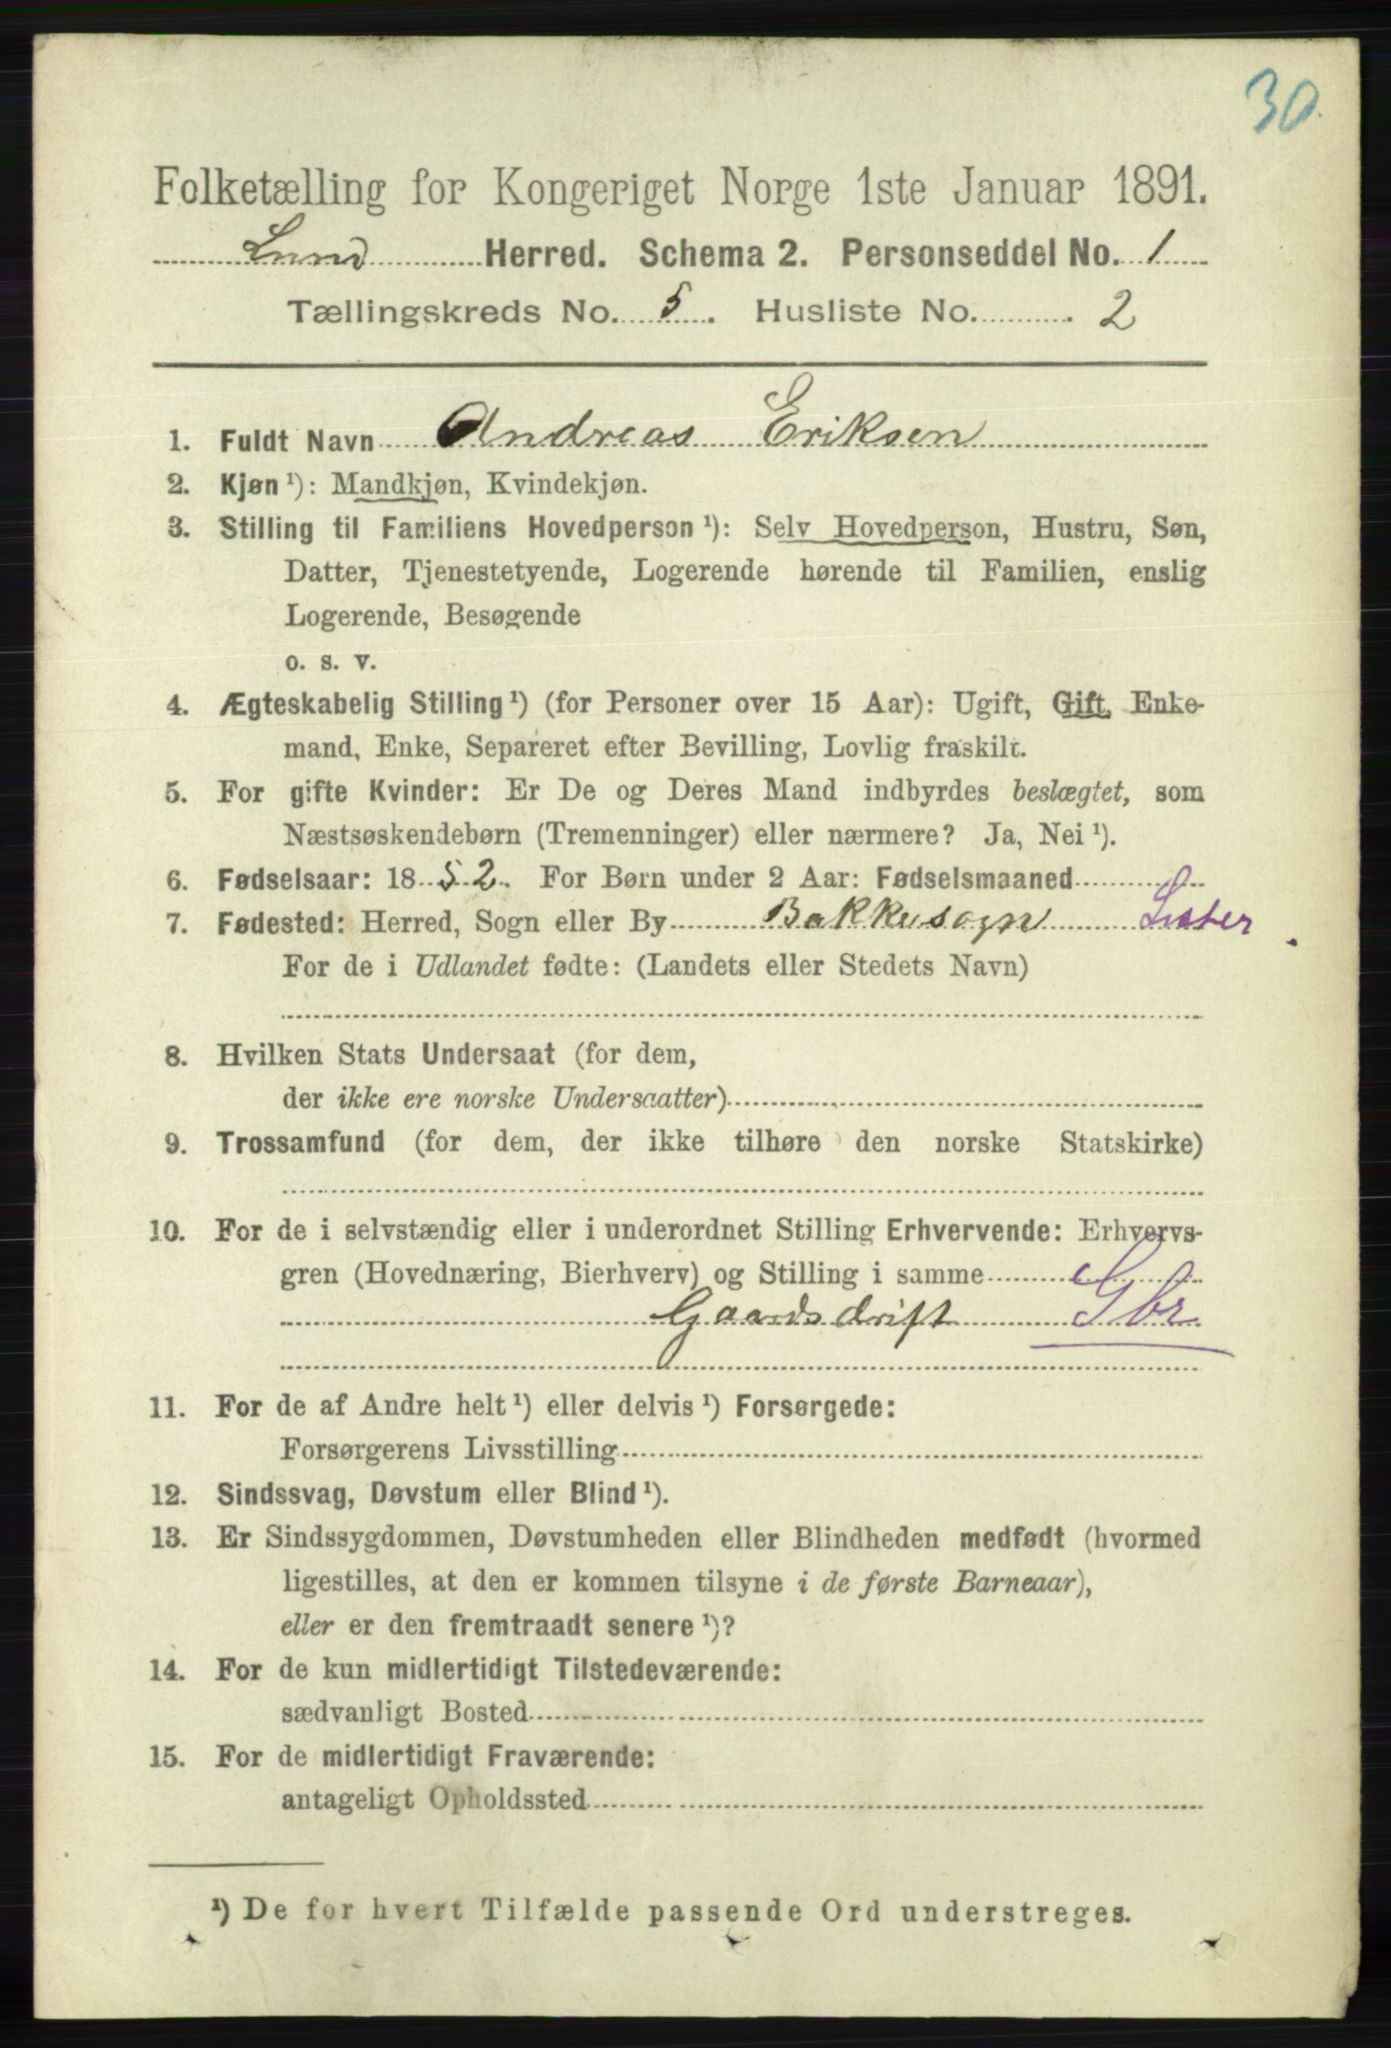 30
Folketælling for Kongeriget Norge 1ste Januar 1891.
Lund Herred. Schema 2. Personseddel No. 1
Tællingskreds No. 5. Husliste No. 2
1. Fuldt Navn Andreas Eriksen
2. Kjøn ¹): Mandkjøn, Kvindekjøn.
3. Stilling til Familiens Hovedperson ¹): Selv Hovedperson, Hustru, Søn,
Datter, Tjenestetyende, Logerende hørende til Familien, enslig
Logerende, Besøgende
o. s. v.
4. Ægteskabelig Stilling ¹) (for Personer over 15 Aar): Ugift, Gift, Enke-
mand, Enke, Separeret efter Bevilling, Lovlig fraskilt.
5. For gifte Kvinder: Er De og Deres Mand indbyrdes beslægtet, som
Næstsøskendebørn (Tremenninger) eller nærmere? Ja, Nei ¹).
6. Fødselsaar: 1852. For Børn under 2 Aar: Fødselsmaaned
7. Fødested: Herred, Sogn eller By Bakkesogn Lister
For de i Udlandet fødte: (Landets eller Stedets Navn)
8. Hvilken Stats Undersaat (for dem,
der ikke ere norske Undersaatter)
9. Trossamfund (for dem, der ikke tilhøre den norske Statskirke)
10. For de i selvstændig eller i underordnet Stilling Erhvervende: Erhvervs-
gren (Hovednæring, Bierhverv) og Stilling i samme
Gaardsdrift Gbr
11. For de af Andre helt ¹) eller delvis ¹) Forsørgede:
Forsørgerens Livsstilling
12. Sindssvag, Døvstum eller Blind ¹).
13. Er Sindssygdommen, Døvstumheden eller Blindheden medfødt (hvormed
ligestilles, at den er kommen tilsyne i de første Barneaar),
eller er den fremtraadt senere ¹)?
14. For de kun midlertidigt Tilstedeværende:
sædvanligt Bosted
15. For de midlertidigt Fraværende:
antageligt Opholdssted
¹) De for hvert Tilfælde passende Ord understreges.